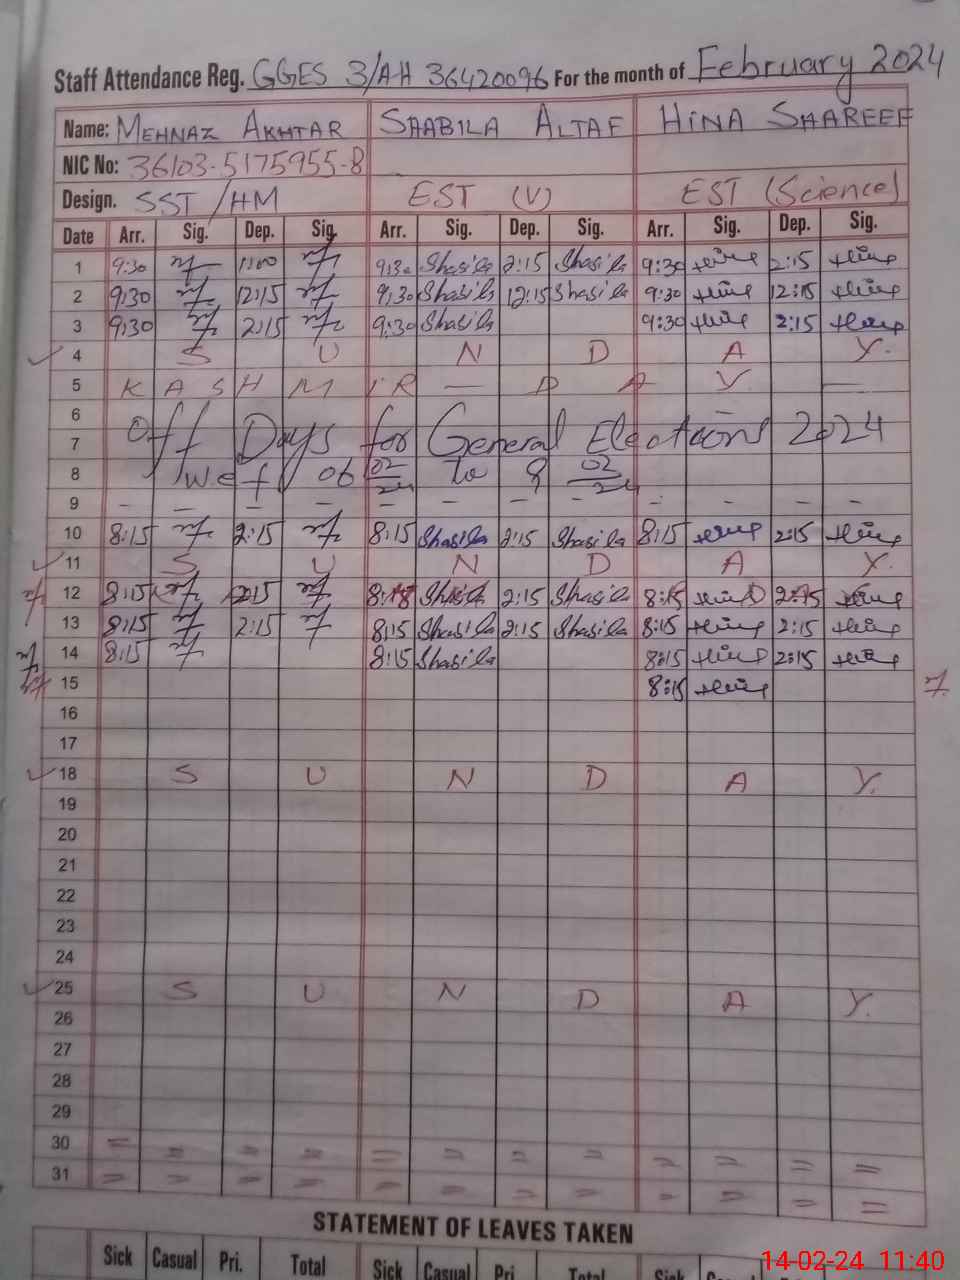 Staff Attendance Reg. GGES 3/AH 36420096 For the month of February 2024
Name: MEHNAZ AKHTAR SHABILA ALTAF HINA SHAREEF
NIC No: 36103-5175955-8
Design. SST/HM EST (V) EST (Science)
Date Arr. Sig. Dep. Sig. Arr. Sig. Dep. Sig. Arr. Sig. Dep. Sig.
1 9:30 1:00 9:30 Shasila 2:15 Shasila 9:30 2:15
2 9:30 12:15 9:30 Shasila 12:15 Shasila 9:30 12:15
3 9:30 2:15 9:30 Shasila 9:30 2:15
4 S U N D A Y.
5 K A S H M IR — D A Y. —
6
7 Off Days for General Elections 2024
8 w e f 06 02/24 to 9 02/24
9 – – – – – – – – – – – –
10 8:15 2:15 8:15 Shasila 2:15 Shasila 8:15 2:15
11 S U N D A Y.
12 8:15 2:15 8:15 Shasila 2:15 Shasila 8:15 2:15
13 8:15 2:15 8:15 Shasila 2:15 Shasila 8:15 2:15
14 8:15 8:15 Shasila 8:15 2:15
15 8:15
16
17
18 S U N D A Y.
19
20
21
22
23
24
25 S U N D A Y.
26
27
28
29
30 = = = = = = = = = = = =
31 = = = = = = = = = = = =
STATEMENT OF LEAVES TAKEN
Sick Casual Pri. Total Sick Casual Pri Total Sick
14-02-24 11:40